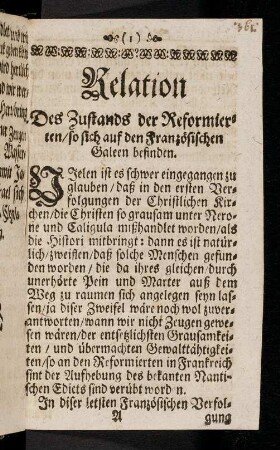 (1)
Relation
Des Zustands der Reformier-
ten/so sich auf den Französischen
Galeen befinden.
VIelen ist es schwer eingegangen zu
glauben/ daß in den ersten Ver-
folgungen der Christlichen Kir-
chen/die Christen so grausam unter Nero-
ne und Caligula mißhandlet worden/als
die Histori mitbringt: dann es ist natür-
lich/zweiflen/daß solche Menschen gefun-
den worden/ die da ihres gleichen/durch
unerhörte Pein und Marter auß dem
Weg zu raumen sich angelegen seyn las-
sen/ja diser Zweifel wäre noch wol zuver-
antworten/wann wir nicht Zeugen gewe-
sen wären/der entsetzlichsten Grausamkei-
ten/ und übermachten Gewaltthätigkei-
ten/so an den Reformierten in Frankreich
sint der Aufhebung des bekanten Nanti-
schen Edicts sind verübt word n.
In diser letsten Französischen Verfol-
A gung